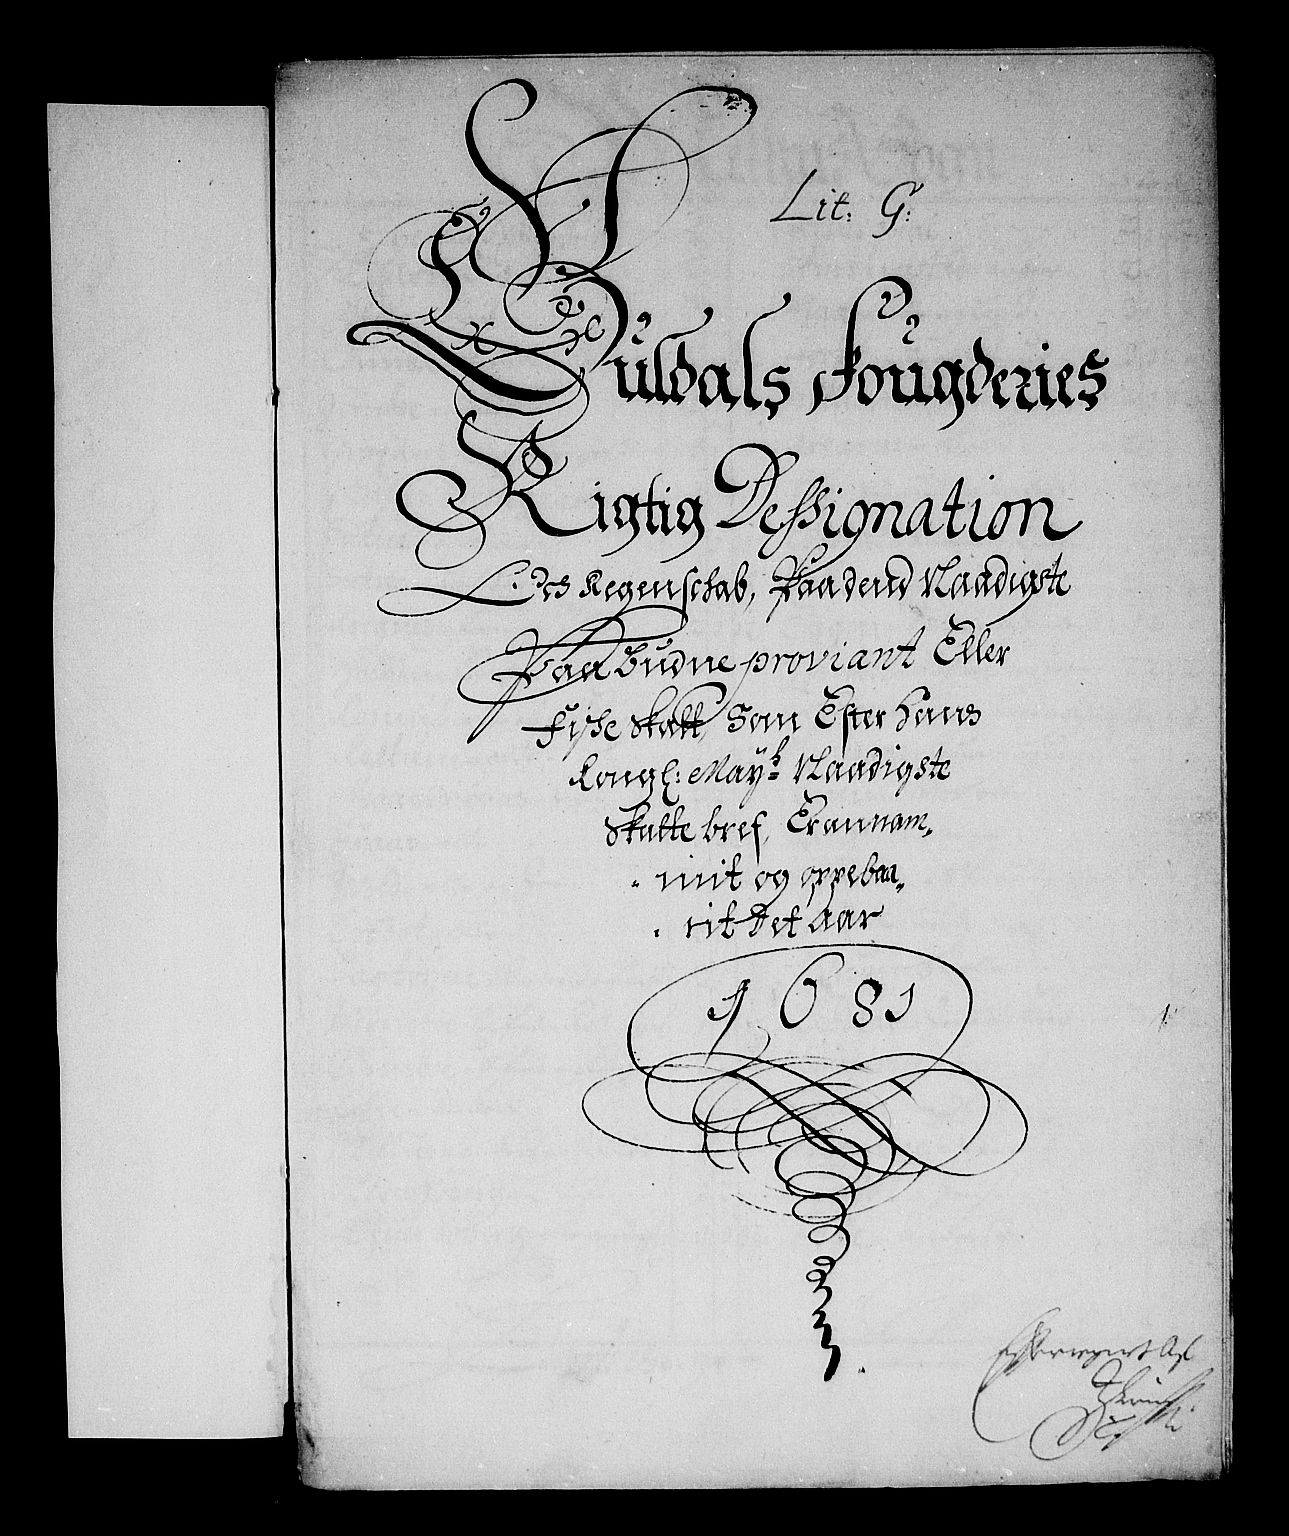 Lit: G:
Guldals Fougderies
Rigtig Dessignation
Och Regenschab, Paa dend Naadigste
Paabudne proviant Eller
Fise Skatt, Som Efter Hans
Kongl: Mayts Naadigste
Skatte bref, Er annam„
„ mit og oppebaa„
„ rit Det Aar
1681
Efterregnet Af